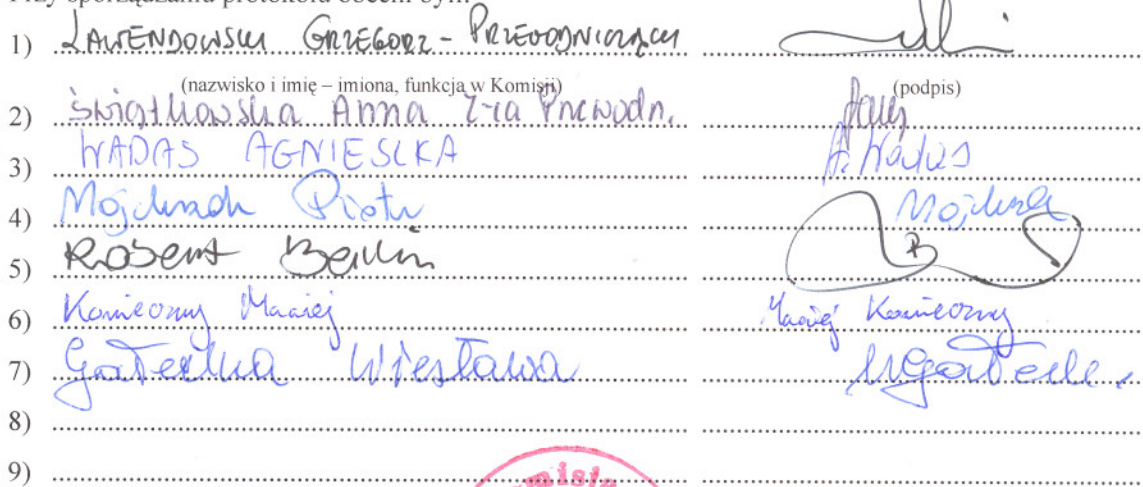 Przy sporządzaniu protokołu obecni byli:
1) LAWENDOWSKI GRZEGORZ - PRZEWODNICZĄCY
(nazwisko i imię – imiona, funkcja w Komisji) (podpis)
2) Świątkowska Anna Z-ca Przewodn.
3) WADAS AGNIESZKA A. Wadas
4) Piotr
5) Robert
6) Konieczny Maciej Maciej Konieczny
7) Gałecka Wiesława WGałecka
8)
9)
Komisja